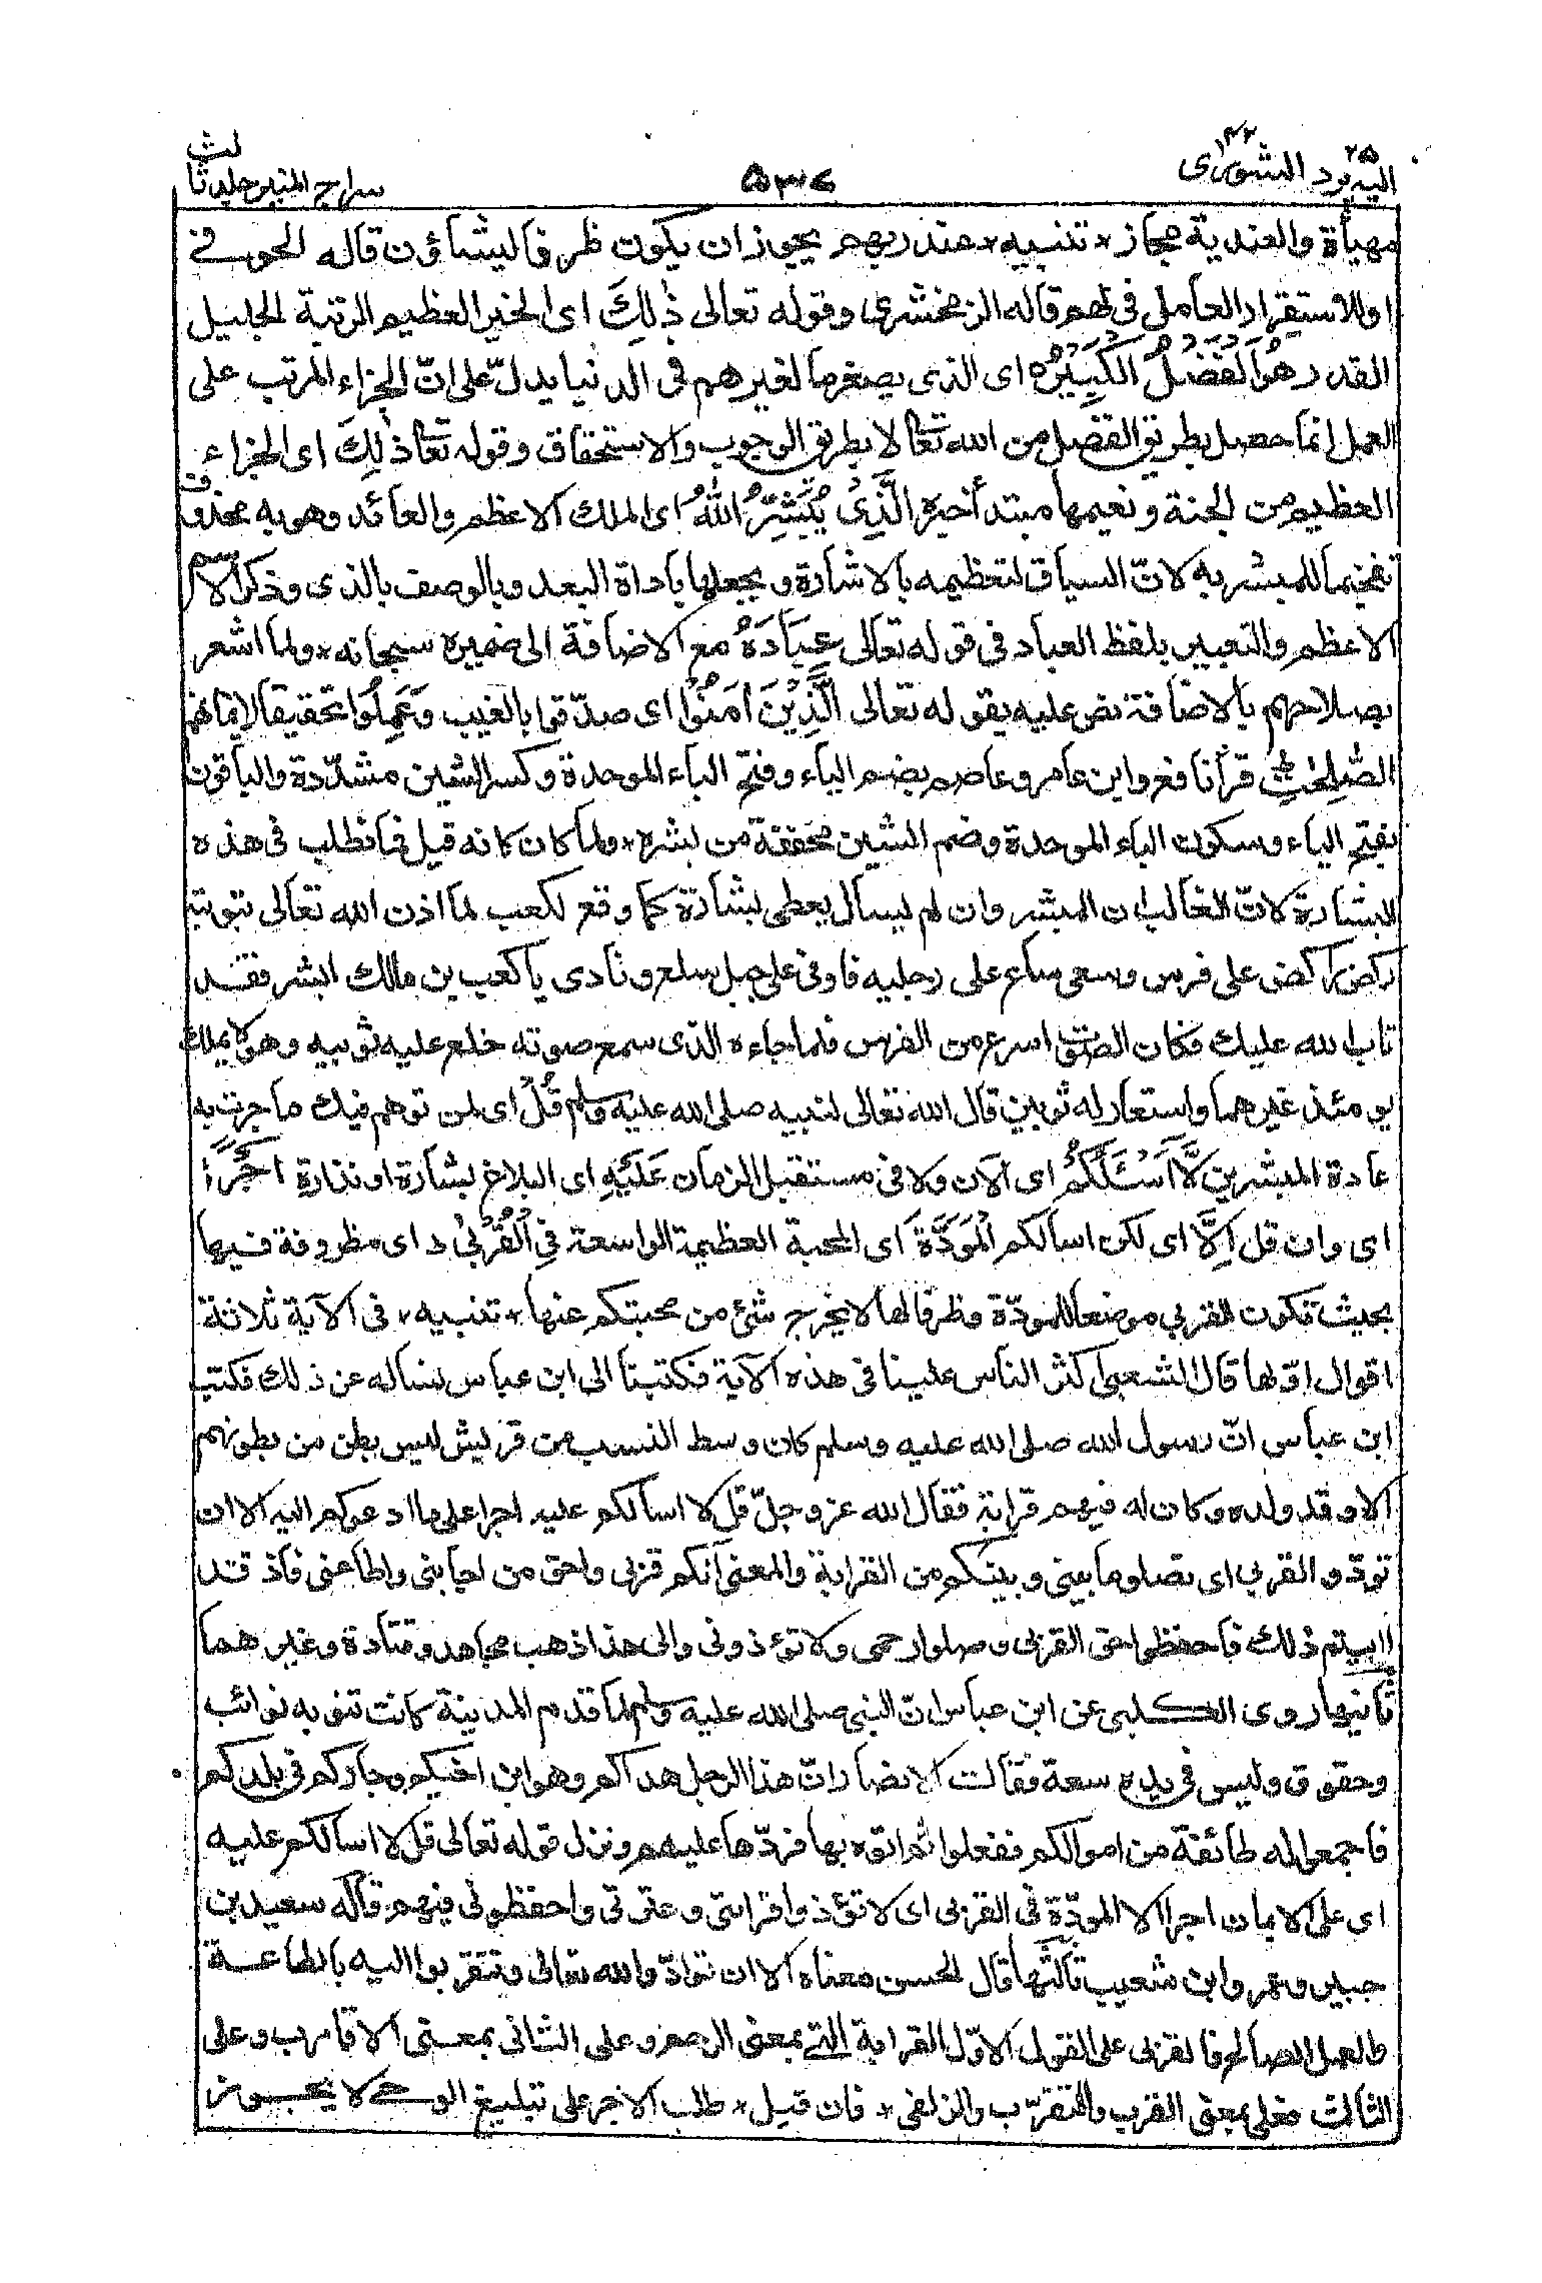 اليه يرد ٢٥ الشورى ٤٢
٥٣٧
سراج المنير جلد ثالث
مهيأة والعندية مجاز * تنبيه * عند ربهم يجوز ان يكون ظرفا ليشاؤن قاله الحوفى
اوللاستقرار العامل فى لهم قاله الزمخشرى وقوله تعالى ذٰلِكَ اى الخير العظيم الرتبة الجليل
القدر هُوَ الْفَضْلُ الْكَبِيْرُ اى الذى يصغر ما لغيرهم فى الدنيا يدلّ على انّ الجزاء المرتب على
العمل انما حصل بطريق الفضل من الله تعا لا بطريق الوجوب والاستحقاق وقوله تعا ذٰلِكَ اى الجزاء
العظيم من الجنة ونعيمها مبتدأ خبره الَّذِىْ يُبَشِّرُ اللّٰهُ اى الملك الاعظم والعائد وهو به محذوف
تفخيما للمبشر به لانّ السياق لتعظيمه بالاشارة و بجعلها باداة البعد وبالوصف بالذى وذكر الاسم
الاعظم والتعبير بلفظ العباد فى قوله تعالى عِبَادَهُ مع الاضافة الى ضميره سبحانه * ولما اشعر
بصلاحهم بالاضافة نص عليه بقوله تعالى الَّذِيْنَ اٰمَنُوْا اى صدّقوا بالغيب وَعَمِلُوا تحقيقا لايمانهم
الصّٰلِحٰتِ ط قرأ نافع وابن عامر وعاصم بضم الياء وفتح الباء الموحدة وكسر الشين مشدّدة والباقون
بفتح الياء وسكون الباء الموحدة وضم الشين مخففة من بشره * ولما كان كانه قيل فما تطلب فى هذه
البشارة لانّ الغالب ان المبشر وان لم يسأل يعطى بشارة كما وقع لكعب لما اذن الله تعالى بتوبته
ركض راكض على فرس وسعى ساع على رجليه فاوفى على جبل سلع ونادى ياكعب بن مالك ابشر فقد
تاب الله عليك فكان الصوت اسرع من الفرس فلما جاءه الذى سمع صوته خلع عليه ثوبيه وهو لا يملك
يومئذ غيرهما واستعار له ثوبين قال الله تعالى لنبيه صلى الله عليه وسلم قُلْ اى لمن توهم فيك ما جرت به
عادة المبشرين لَّا اَسْـَٔلُكُمْ اى الآن ولا فى مستقبل الزمان عَلَيْهِ اى البلاغ بشارة او نذارة اَجْرًا
اى وان قل اِلَّا اى لكن اسألكم الْمَوَدَّةَ اى المحبة العظيمة الواسعة فِى الْقُرْبٰى ط اى مظروفة فيها
بحيث تكون القربى موضعا للمودّة وظرفا لها لا يخرج شئ من محبتكم عنها * تنبيه * فى الآية ثلاثة
اقوال اوّلها قال الشعبى اكثر الناس علينا فى هذه الآية فكتبنا الى ابن عباس نسأله عن ذلك فكتب
ابن عباس انّ رسول الله صلى الله عليه وسلم كان وسط النسب من قريش ليس بطن من بطونهم
الا وقد ولده وكان له فيهم قرابة فقال الله عز وجلّ قل لا اسألكم عليه اجرا على ما ادعوكم اليه الا ان
تودّو القربى اى تصلوا ما بينى وبينكم من القرابة والمعنى انكم قربى واحق من اجابنى واطاعنى فاذ قد
ابيتم ذلك فاحفظوا حق القربى وصلوا رحمى ولا تؤذونى والى هذا ذهب مجاهد وقتادة وغيرهما
ثانيها روى الكلبى عن ابن عباس انّ النبى صلى الله عليه وسلم لما قدم المدينة كانت تنوبه نوائب
وحقوق وليس فى يده سعة فقالت الانصار ان هذا الرجل هداكم وهو ابن اختكم وجاركم فى بلدكم
فاجمعوا له طائفة من اموالكم ففعلوا ثم اتوه بها فردّها عليهم ونزل قوله تعالى قل لا اسألكم عليه
اى على الايمان اجرا الا المودّة فى القربى اى لا تؤذوا قرابتى وعترتى واحفظونى فيهم قاله سعيد بن
جبير وعمرو ابن شعيب ثالثها قال الحسن معناه الا ان توادّوا الله تعالى وتتقربوا اليه بالطاعة
والعمل الصالح فالقربى على القول الاوّل القرابة التى بمعنى الرحم وعلى الثانى بمعنى الاقارب وعلى
الثالث فعلى بمعنى القرب والتقرّب والزلفى * فان قيل * طلب الاجر على تبليغ الوحى لا يجوز